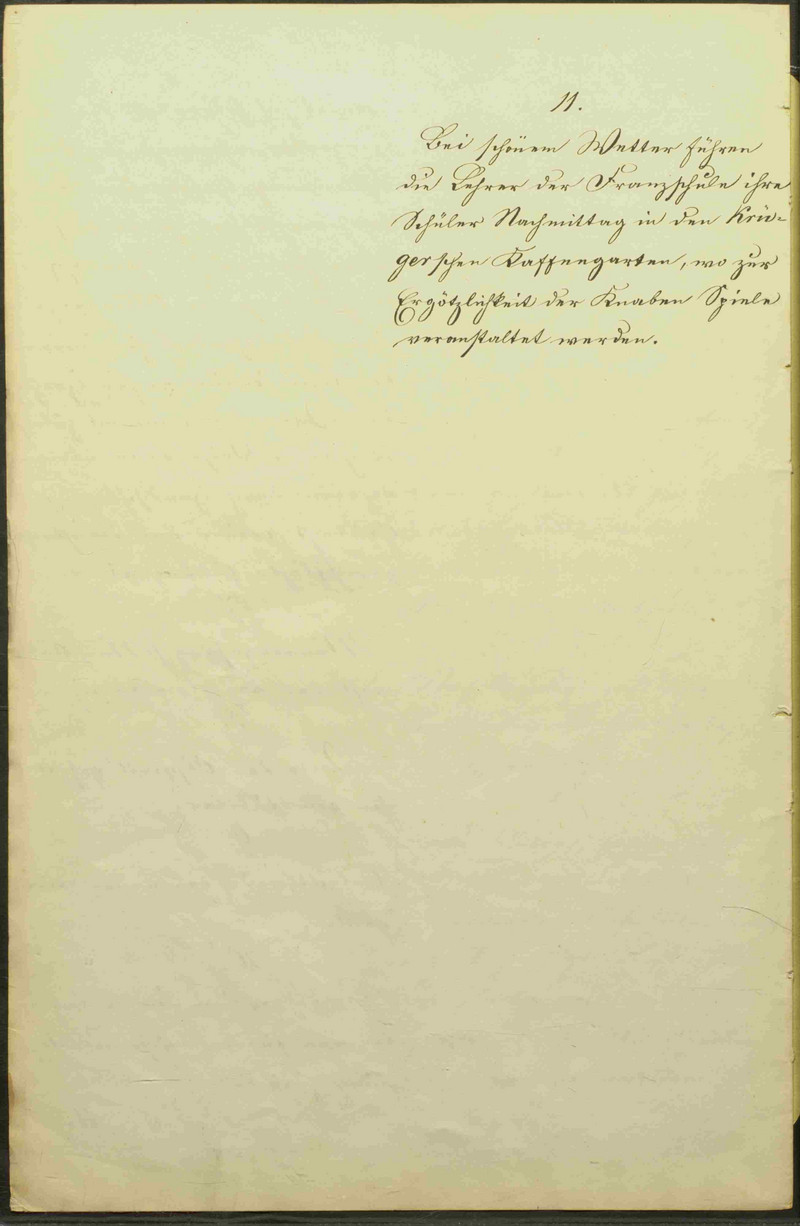 11.
Bei schönem Wetter führen
die Lehrer der Franzschule ihre
Schüler Nachmittag in den Krü-
gerschen Kaffeegarten, wo zur
Ergötzlichkeit der Knaben Spiele
veranstaltet werden.